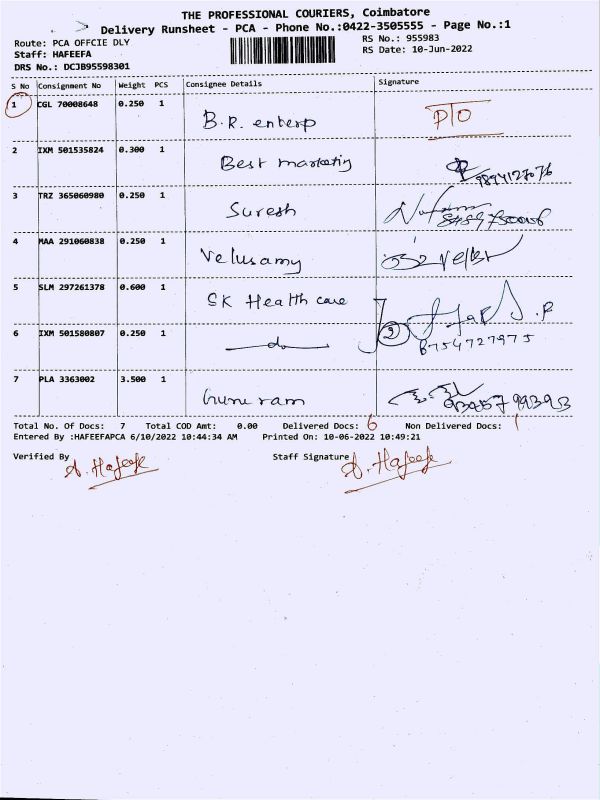 THE PROFESSIONAL COURIERS, Coimbatore
Delivery Runsheet - PCA - Phone No.:0422-3505555 - Page No.:1
Route: PCA OFFCIE DLY
RS No.: 955983
Staff: HAFEEFA
RS Date: 10-Jun-2022
DRS No.: DCJB95598301
S No Consignment No Weight PCS Consignee Details Signature
1 CGL 70008648 0.250 1 B.R. enterp PTO
2 IXM 501535824 0.300 1 Best marketing 9894127076
3 TRZ 365060980 0.250 1 Suresh
4 MAA 291060838 0.250 1 Velusamy
5 SLM 297261378 0.600 1 SK Health care
6 IXM 501580807 0.250 1 do 2 8754727975
7 PLA 3363002 3.500 1 Guru ram
Total No. Of Docs: 7 Total COD Amt: 0.00 Delivered Docs: 6 Non Delivered Docs: 1
Entered By :HAFEEFAPCA 6/10/2022 10:44:34 AM Printed On: 10-06-2022 10:49:21
Verified By A. Hafeefa Staff Signature A. Hafeefa